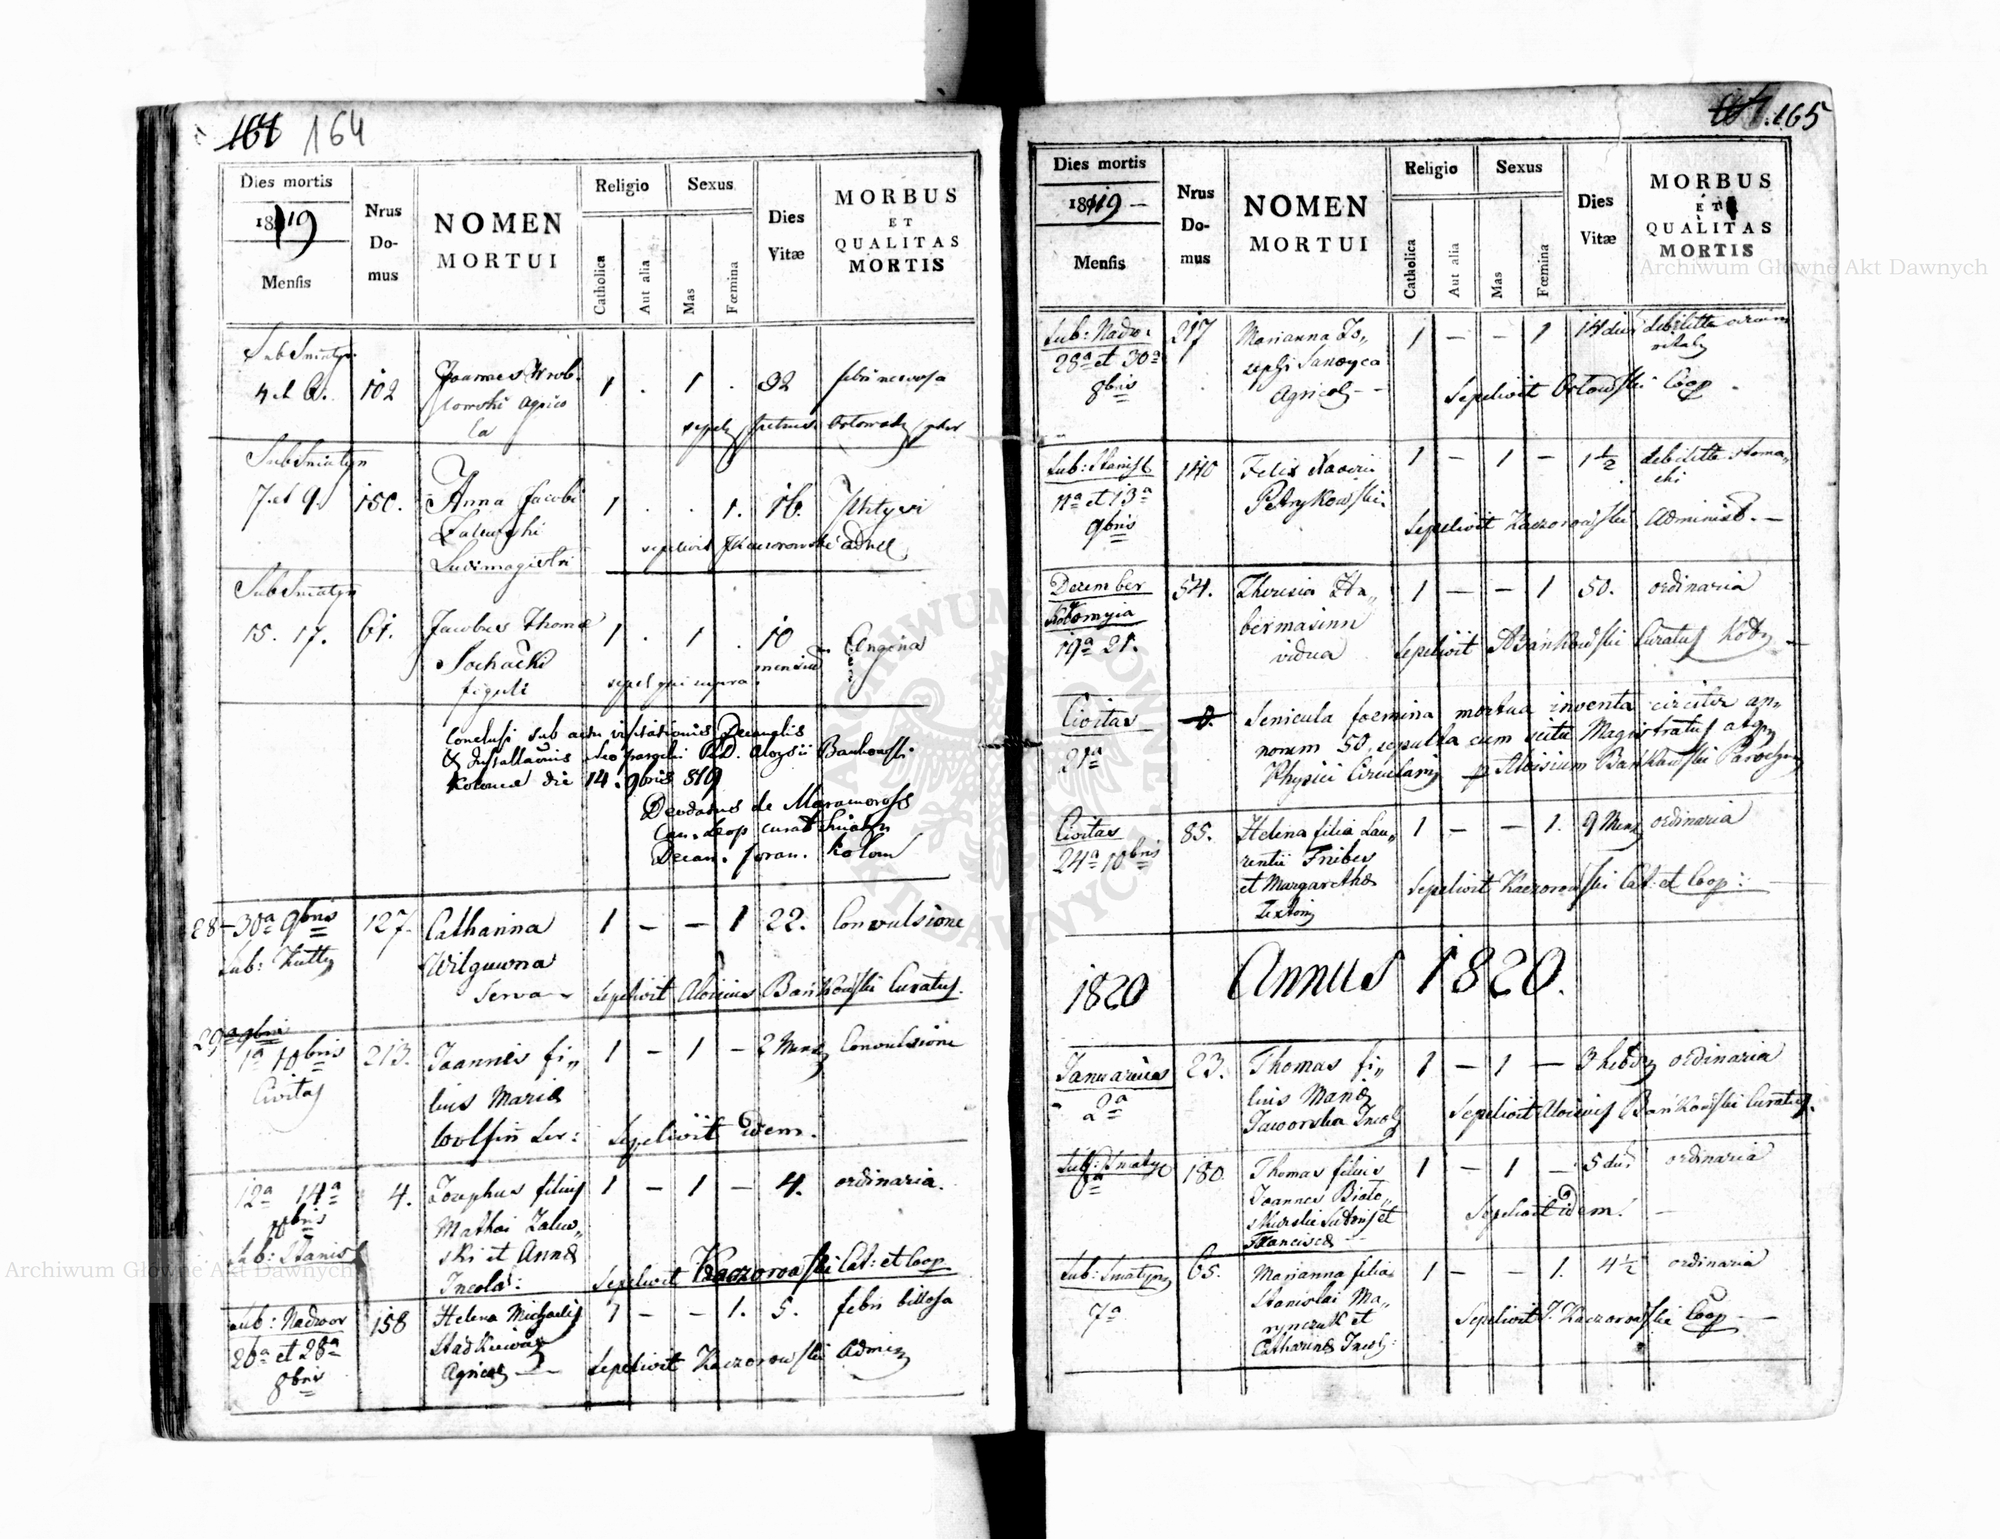 164 164
Dies mortis
1819
Mensis
Nrus
Do-
mus
NOMEN
MORTUI
Religio
Catholica
Aut alia
Sexus
Mas
Fœmina
Dies
Vitæ
MORBUS
ET
QUALITAS
MORTIS
Sub Sniatyn
4 et 6. 102 Joannes Wrob- 1 . 1 . 32 febri nervosa
lowski Agrico
la
Sub Sniatyn
7 et 9. 150. Anna Jacobi 1 . . 1. 16. Phtysi
Ludimagistri sepelivit Kaczorowski
Sub Sniatyn
15. 17. 61. Jacobus Thomæ 1 . 1 . 10 Angina
Sochacki mensium
figuli sepel qui supra
Conclusi sub actu visitationis Decanalis
Aloysii Bankowski
die 14. 9bris 819
Deodatus de
curat Sniatyn
Decan. foran. Kolom
28-30a 9bris 127. Catharina 1 – – 1 22. Convulsione
Sub: Kutty Wilguwna
Serva Sepelivit Aloisius Bańkowski Curatus.
29a 9bris
1a 10bris 213. Joannes fi„ 1 – 1 – 2 Mens Convulsione
Civitas lius Mariæ
Wolfin Ser: Sepelivit idem.
12a 14a 4. Josephus filius 1 – 1 – 4. ordinaria.
10bris Mathai Zalew„
Sub: Stanisl ski et Annæ
Incola: Sepelivit Kaczorowski Cat: et Coop
Sub: Nadwor 158 Helena Michaelis 1 – – 1. 5. febri billosa
26a et 28a
8bris Agricol Sepelivit Kaczorowski Admin
165
Dies mortis
1819
Mensis
Nrus
Do-
mus
NOMEN
MORTUI
Religio
Catholica
Aut alia
Sexus
Mas
Fœmina
Dies
Vitæ
MORBUS
ET
QUALITAS
MORTIS
Sub: Nadwo: 217 Marianna Jo„ 1 – – 1 14 dies debilitte virium
28a et 30a sephi Sanoyca vitalis
8bris Agricol Sepelivit Orlowski Coop
Sub: Stanisl 140 Felix Xaverii 1 – 1 – 1½ debilitte stoma„
11a et 13a Petrykowski chi
9bris Sepelivit Kaczorowski Administ.
December 54. Theresia Ha„ 1 – – 1 50. ordinaria
Kolomyia bermasinn
19a 21. vidua Sepelivit A Bańkowski Curatus
Civitas Senicula foemina mortua inventa circiter an„
21a norum 50, sepulta cum scitu Magistratus atq
Physici Circularis p Aloisium Bańkowski Parochum
Civitas 85. Helena filia Lau„ 1 – – 1. 9 Mens ordinaria
24a 10bris rentii Fniber
et Margarethæ Sepelivit Kaczorowski Cat: et Coop:
1820 Annus 1820.
Januarius 23. Thomas fi„ 1 – 1 – 3 hebd ordinaria
2a lius Mariæ
Jaworska Incol Sepelivit Aloisius Bańkowski Curatus.
Sub: Sniatyn 180 Thomas filius 1 – 1 – 5 die ordinaria
6a Joannes Biało„
skurski Sutoris et Sepelivit idem.
Francisca
Sub: Sniatyn 65. Marianna filia 1 – – 1. 4½ ordinaria
7a Stanislai Ma„
rynczuk et Sepelivit J. Kaczorowski Coop
Catharinæ Incol:
Archiwum Główne Akt Dawnych
Archiwum Główne Akt Dawnych
ARCHIWUM GŁÓWNE AKT DAWNYCH